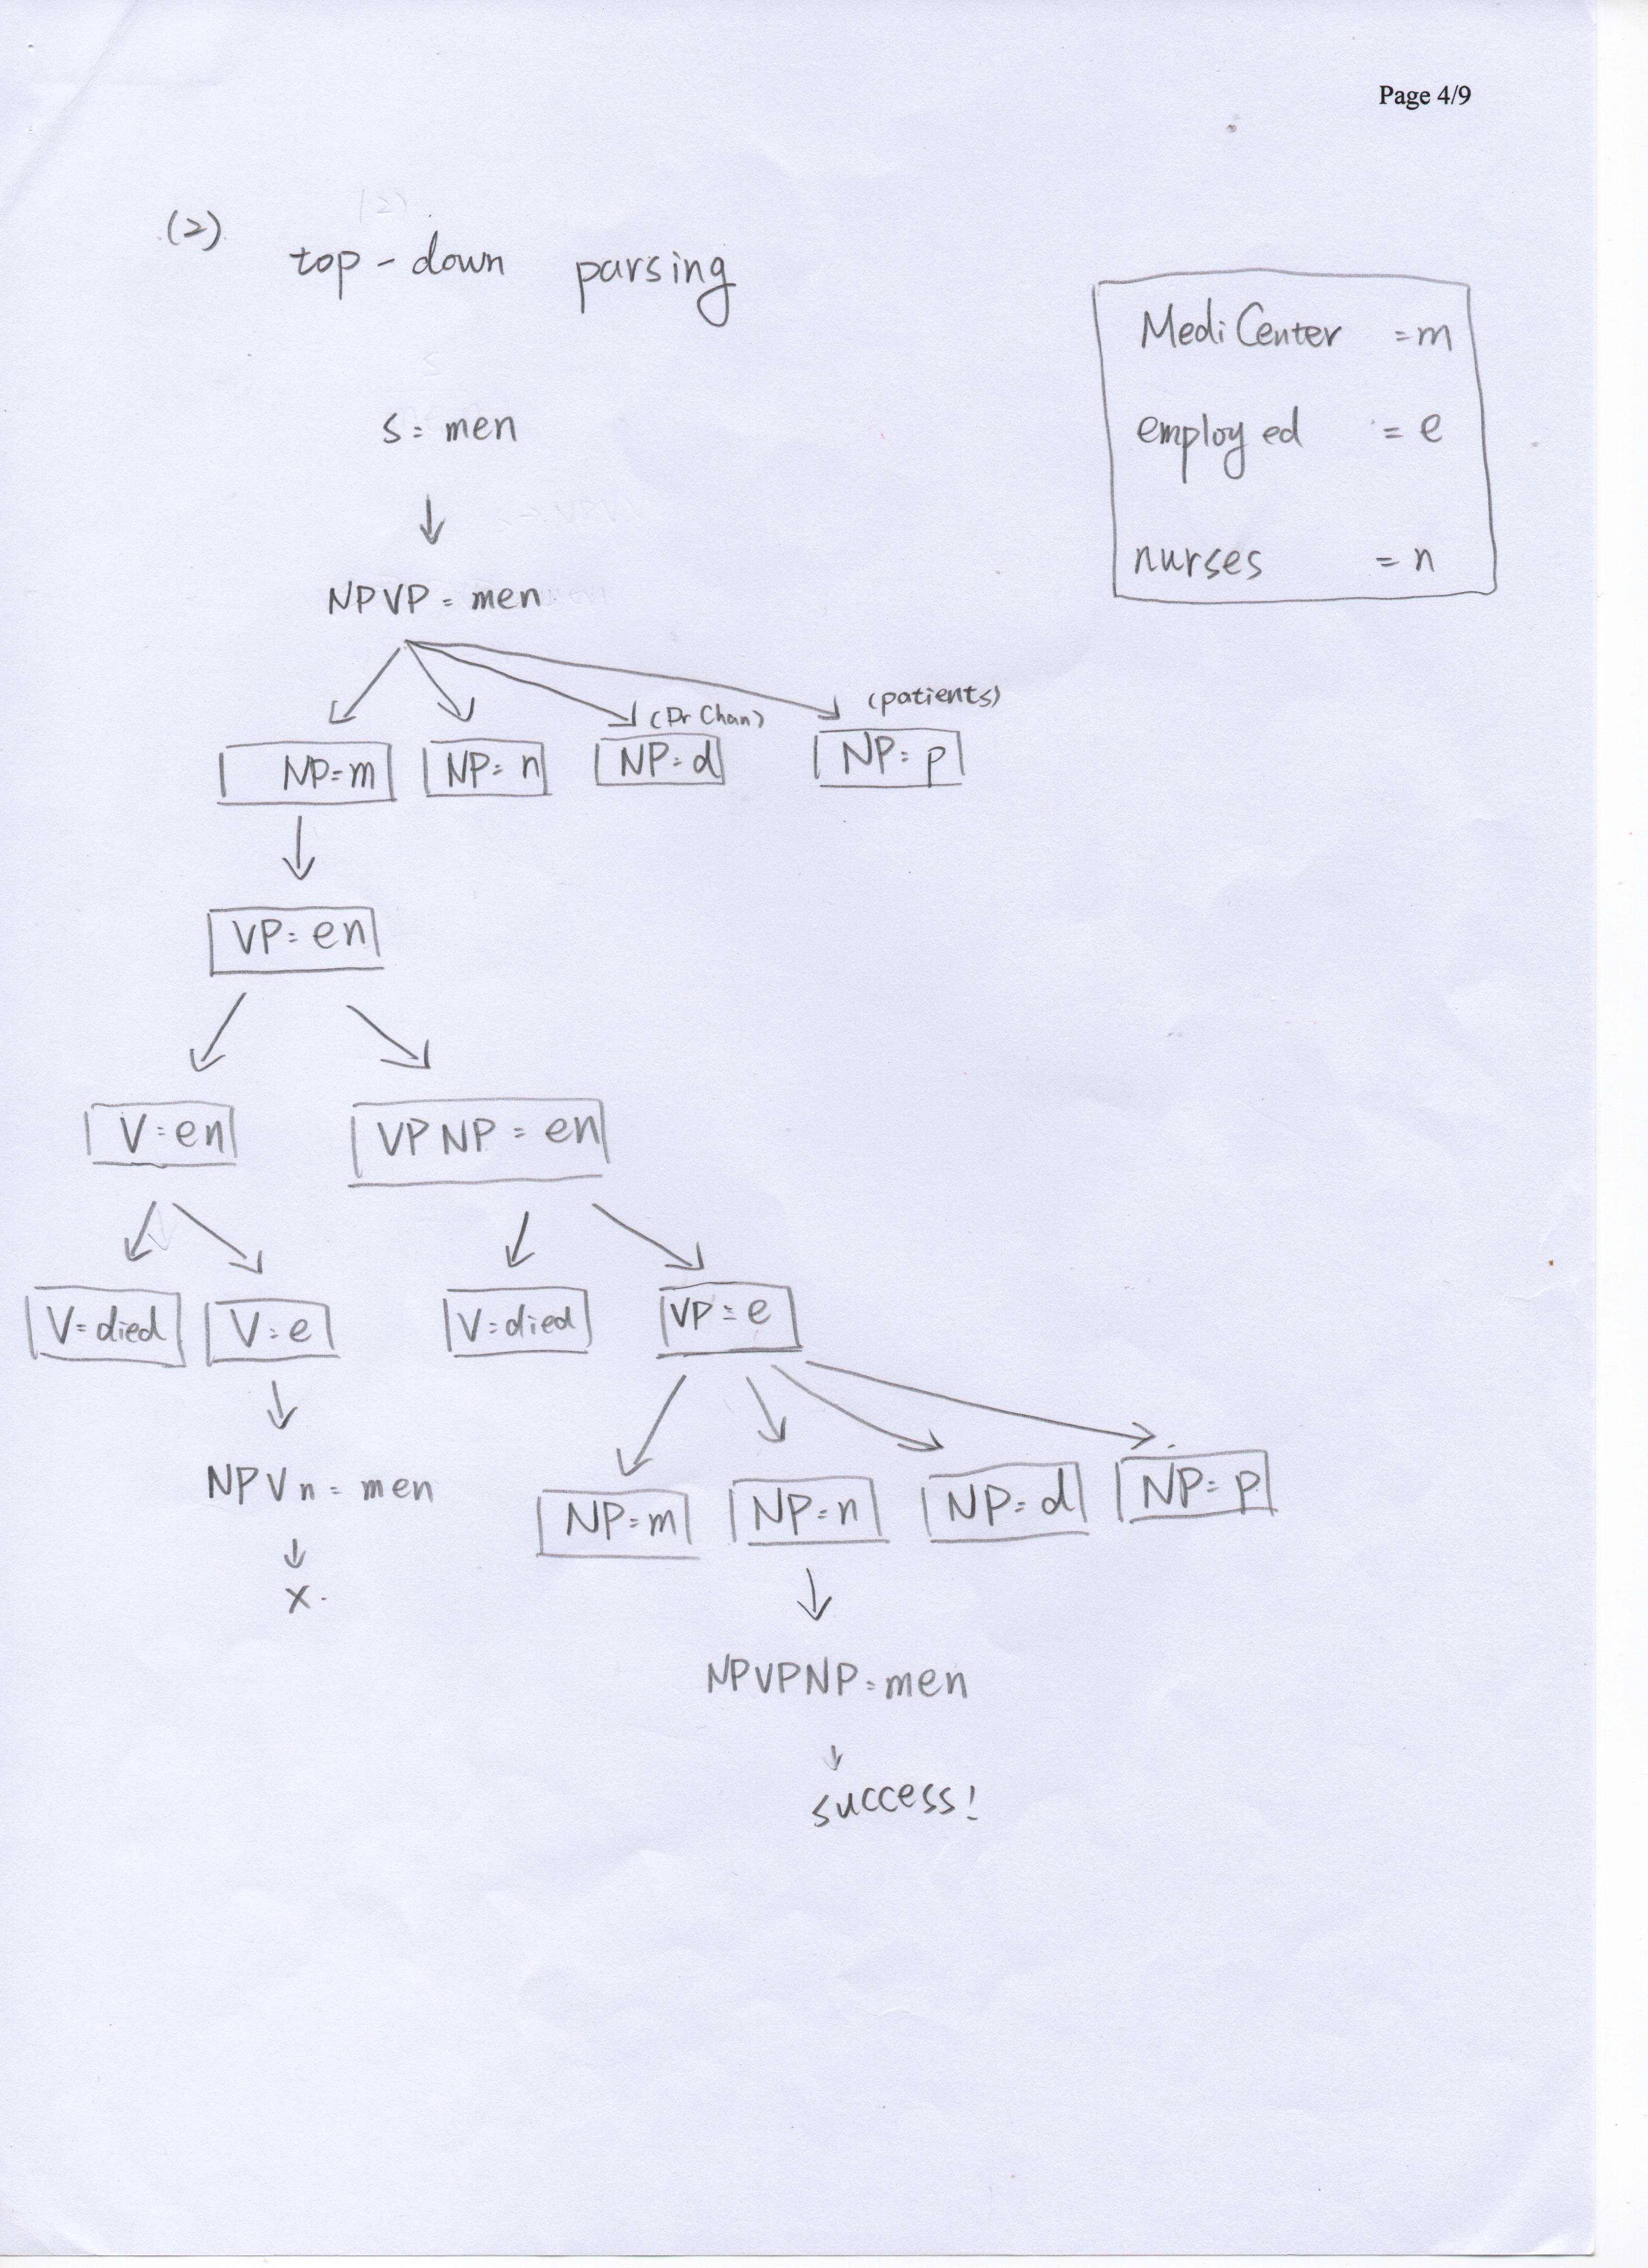 Page 4/9
(2)
top-down parsing
MediCenter = m
employed = e
nurses = n
S = men
NPVP = men
(Dr Chan) (patients)
NP=m NP=n NP=d NP=p
VP=en
V=en VPNP=en
V=died V=e V=died VP=e
NPVn=men NP=m NP=n NP=d NP=p
X.
NPVPNP=men
success!